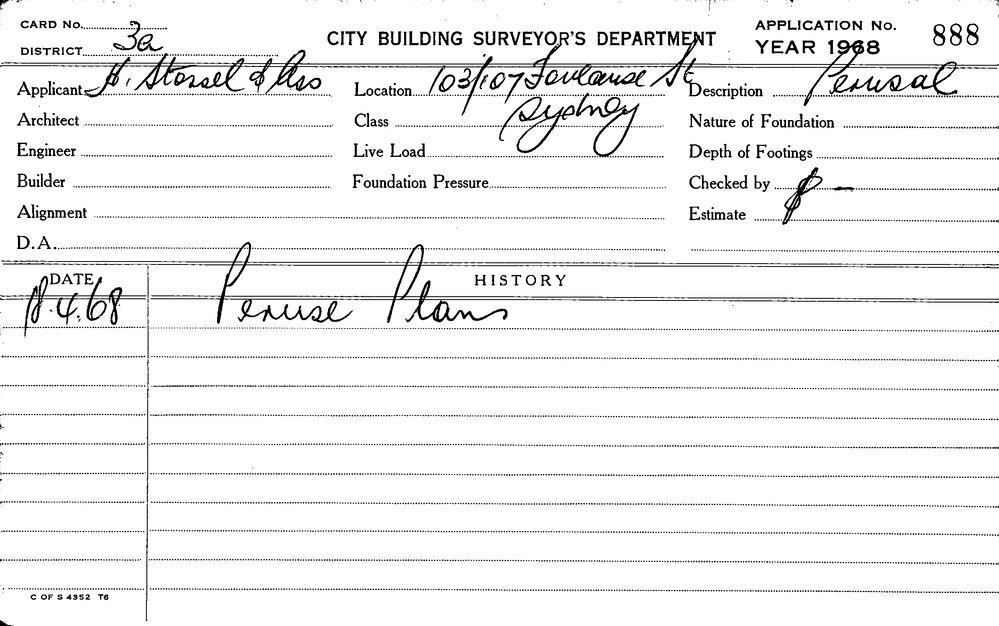 CARD No.
DISTRICT 3a
CITY BUILDING SURVEYOR'S DEPARTMENT
APPLICATION No. 888
YEAR 1968
Applicant H. Stossel & Ass
Location 103/107 St
Sydney
Description Perusal
Architect
Class
Nature of Foundation
Engineer
Live Load
Depth of Footings
Builder
Foundation Pressure
Checked by
Alignment
Estimate $ –
D.A.
DATE
HISTORY
18.4.68 Peruse Plans
C OF S 4352 T6